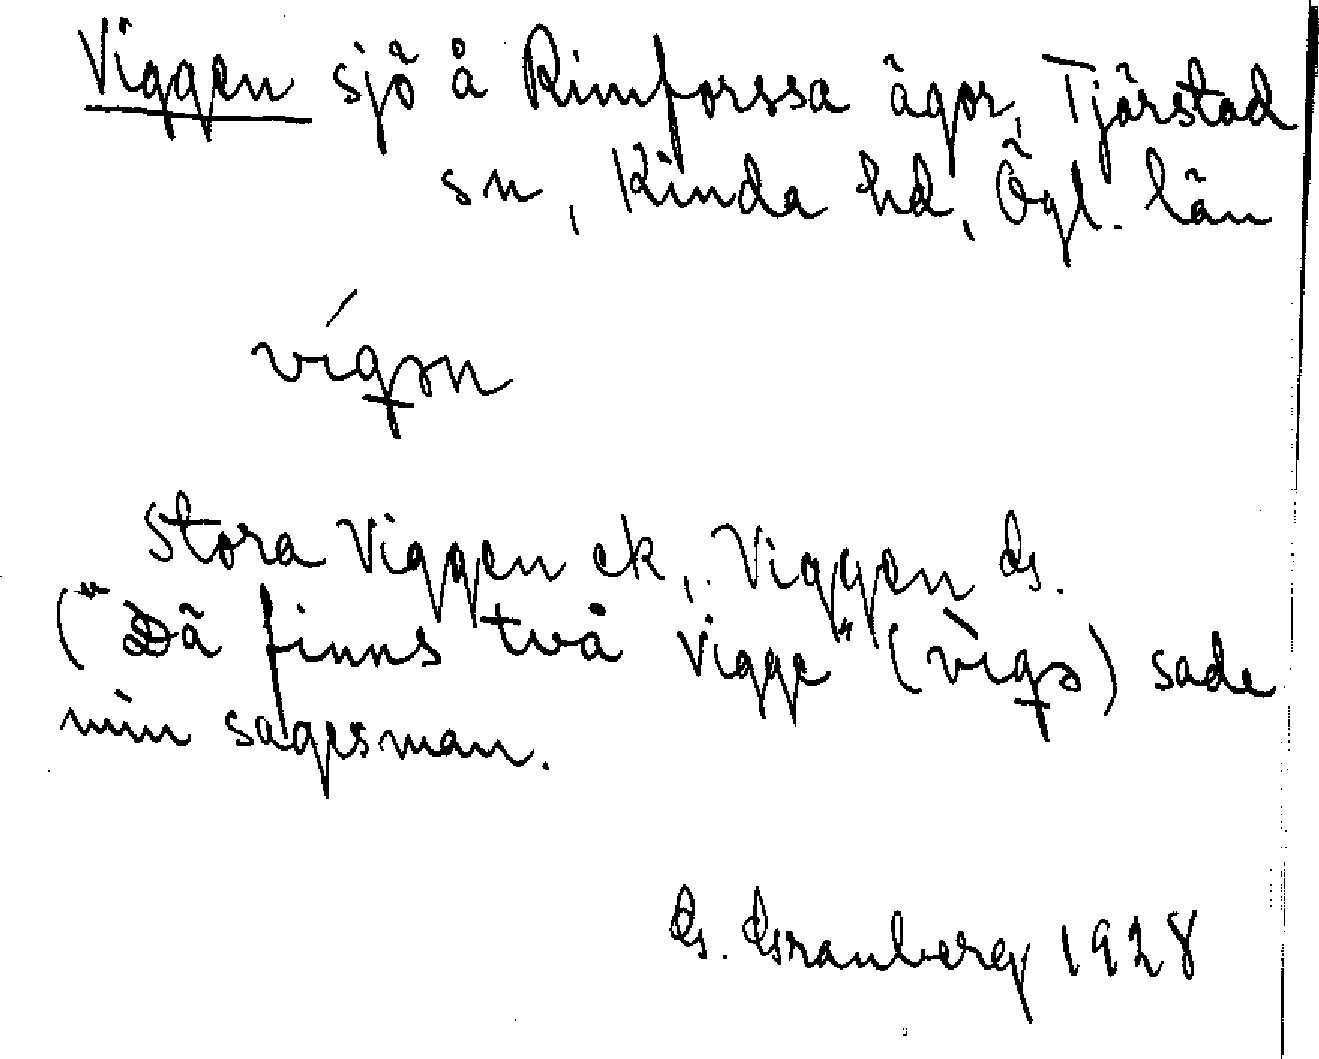 Viggen sjö å Rimforssa ägor, Tjärstad
sn, Kinda hd, Ögl. län
vígən
Stora Viggen ek, Viggen G.
("Dä finns två Vigge" (vìgə) sade
min sagesman.
G. Granberg 1928